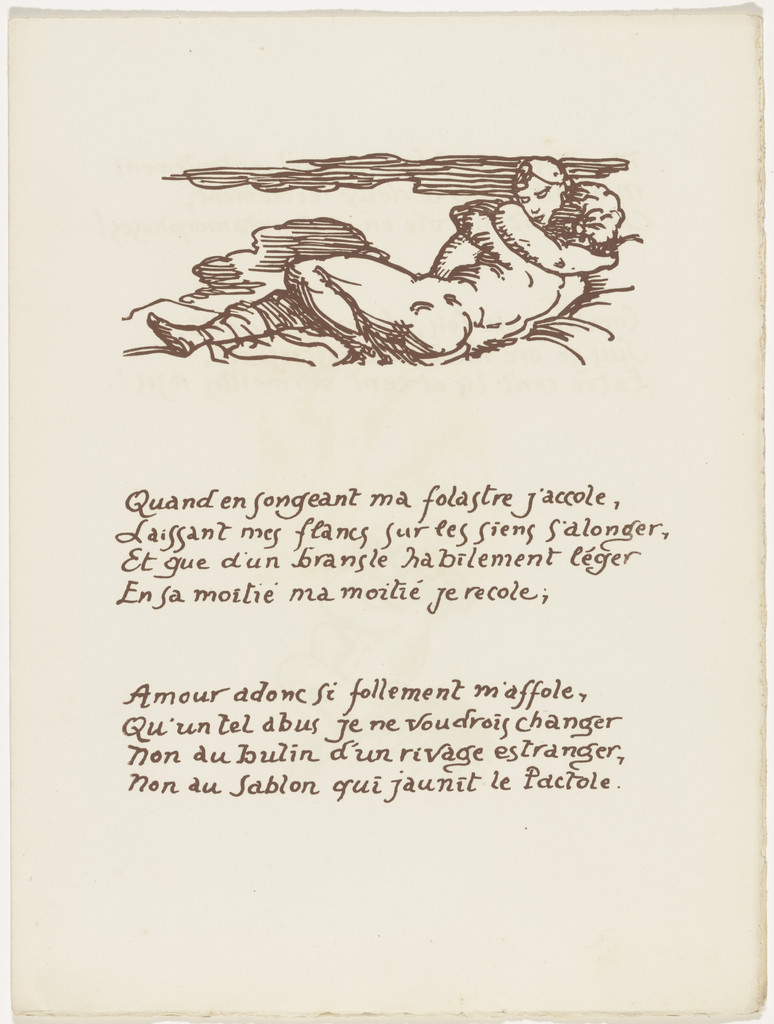 Quand en songeant ma folastre j'accole,
Laissant mes flancs sur les siens s'alonger,
Et que d'un bransle habilement léger
En sa moitié ma moitié je recole;
Amour adonc si follement m'affole,
Qu'un tel abus je ne voudrois changer
Non au butin d'un rivage estranger,
Non au sablon qui jaunit le Pactole.